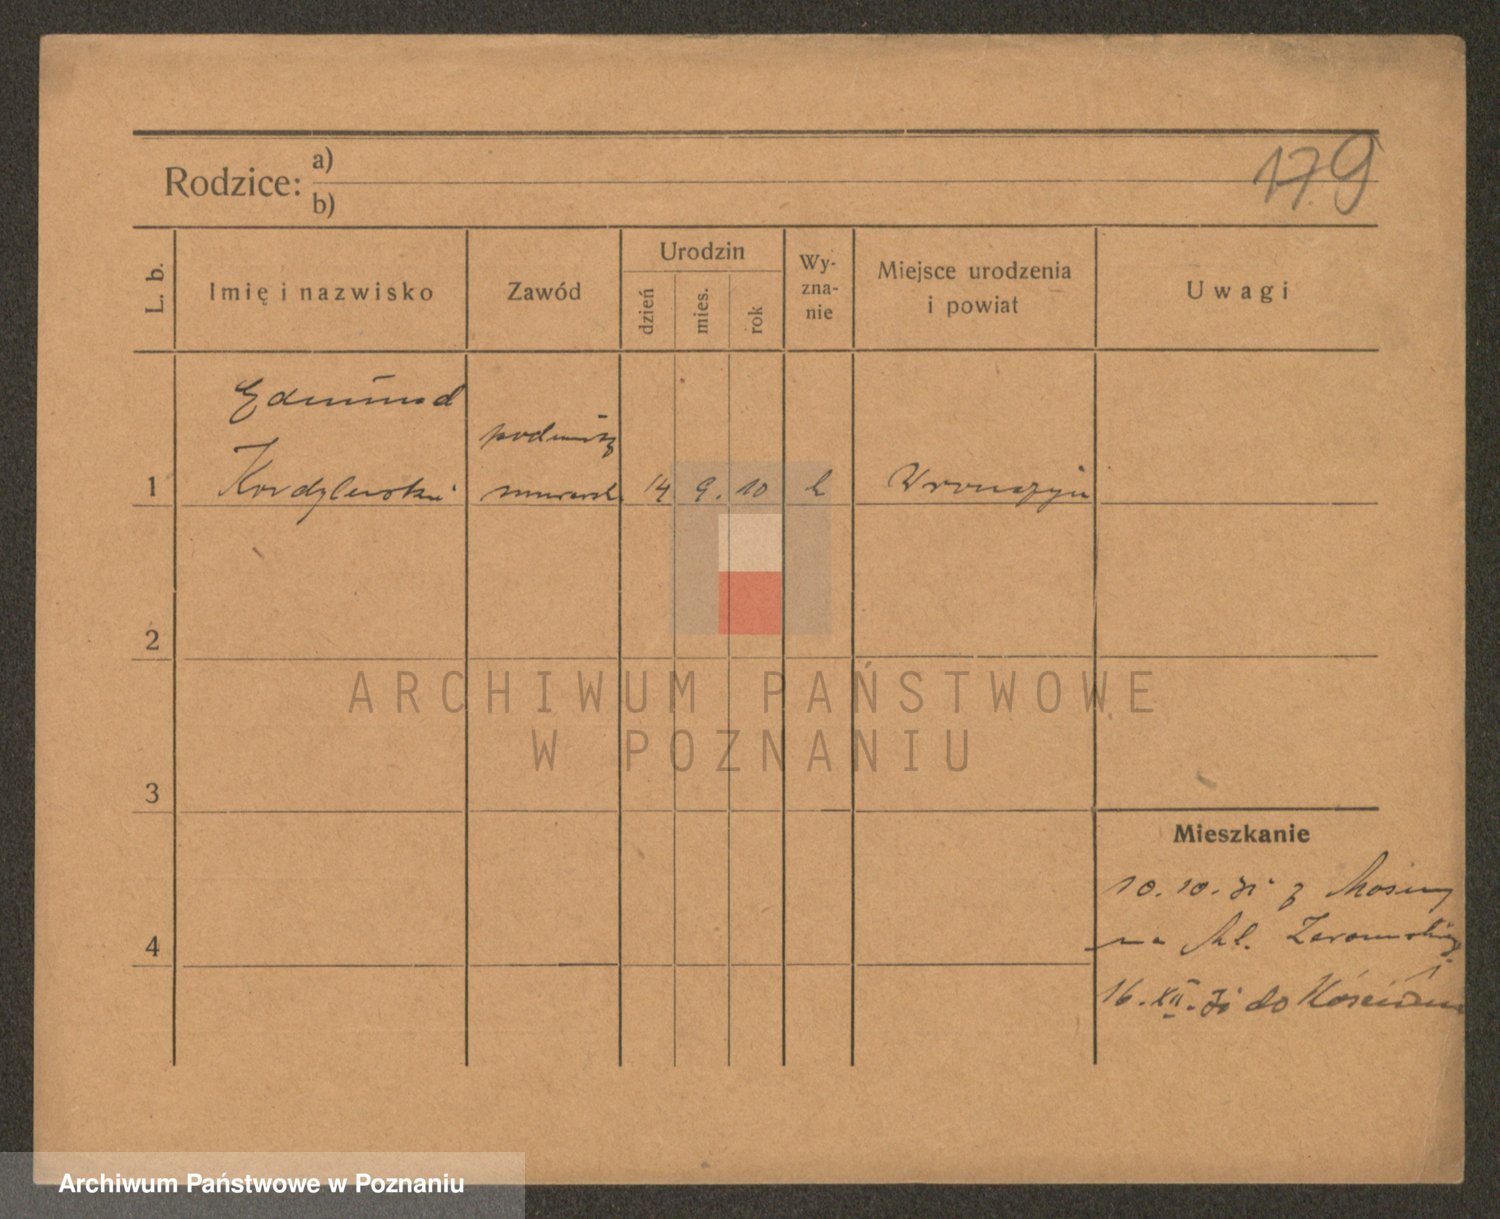 179
Rodzice:
a)
b)
L. b.
Imię i nazwisko
Zawód
Urodzin
dzień
mies.
rok
Wy-
zna-
nie
Miejsce urodzenia
i powiat
Uwagi
Edmund
1 Kordylewski 14 9. 10 Wronczyn
2
ARCHIWUM PAŃSTWOWE
W POZNANIU
3
Mieszkanie
10. 10. z Mosiny
4
na
16. XII. do
Archiwum Państwowe w Poznaniu